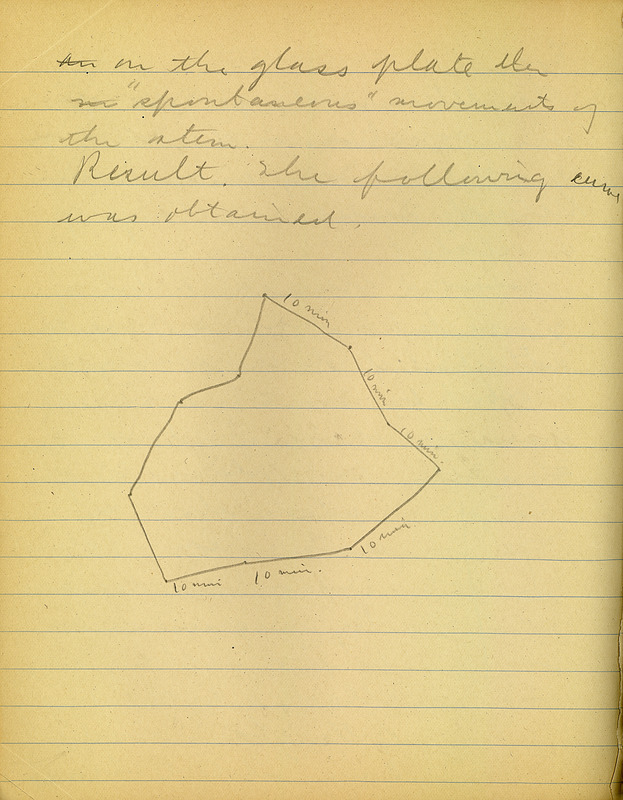 on the glass plate the
"spontaneous" movements of
the stem.
Result. The following curve
was obtained.
10 min
10 min
10 min.
10 min.
10 min.
10 min